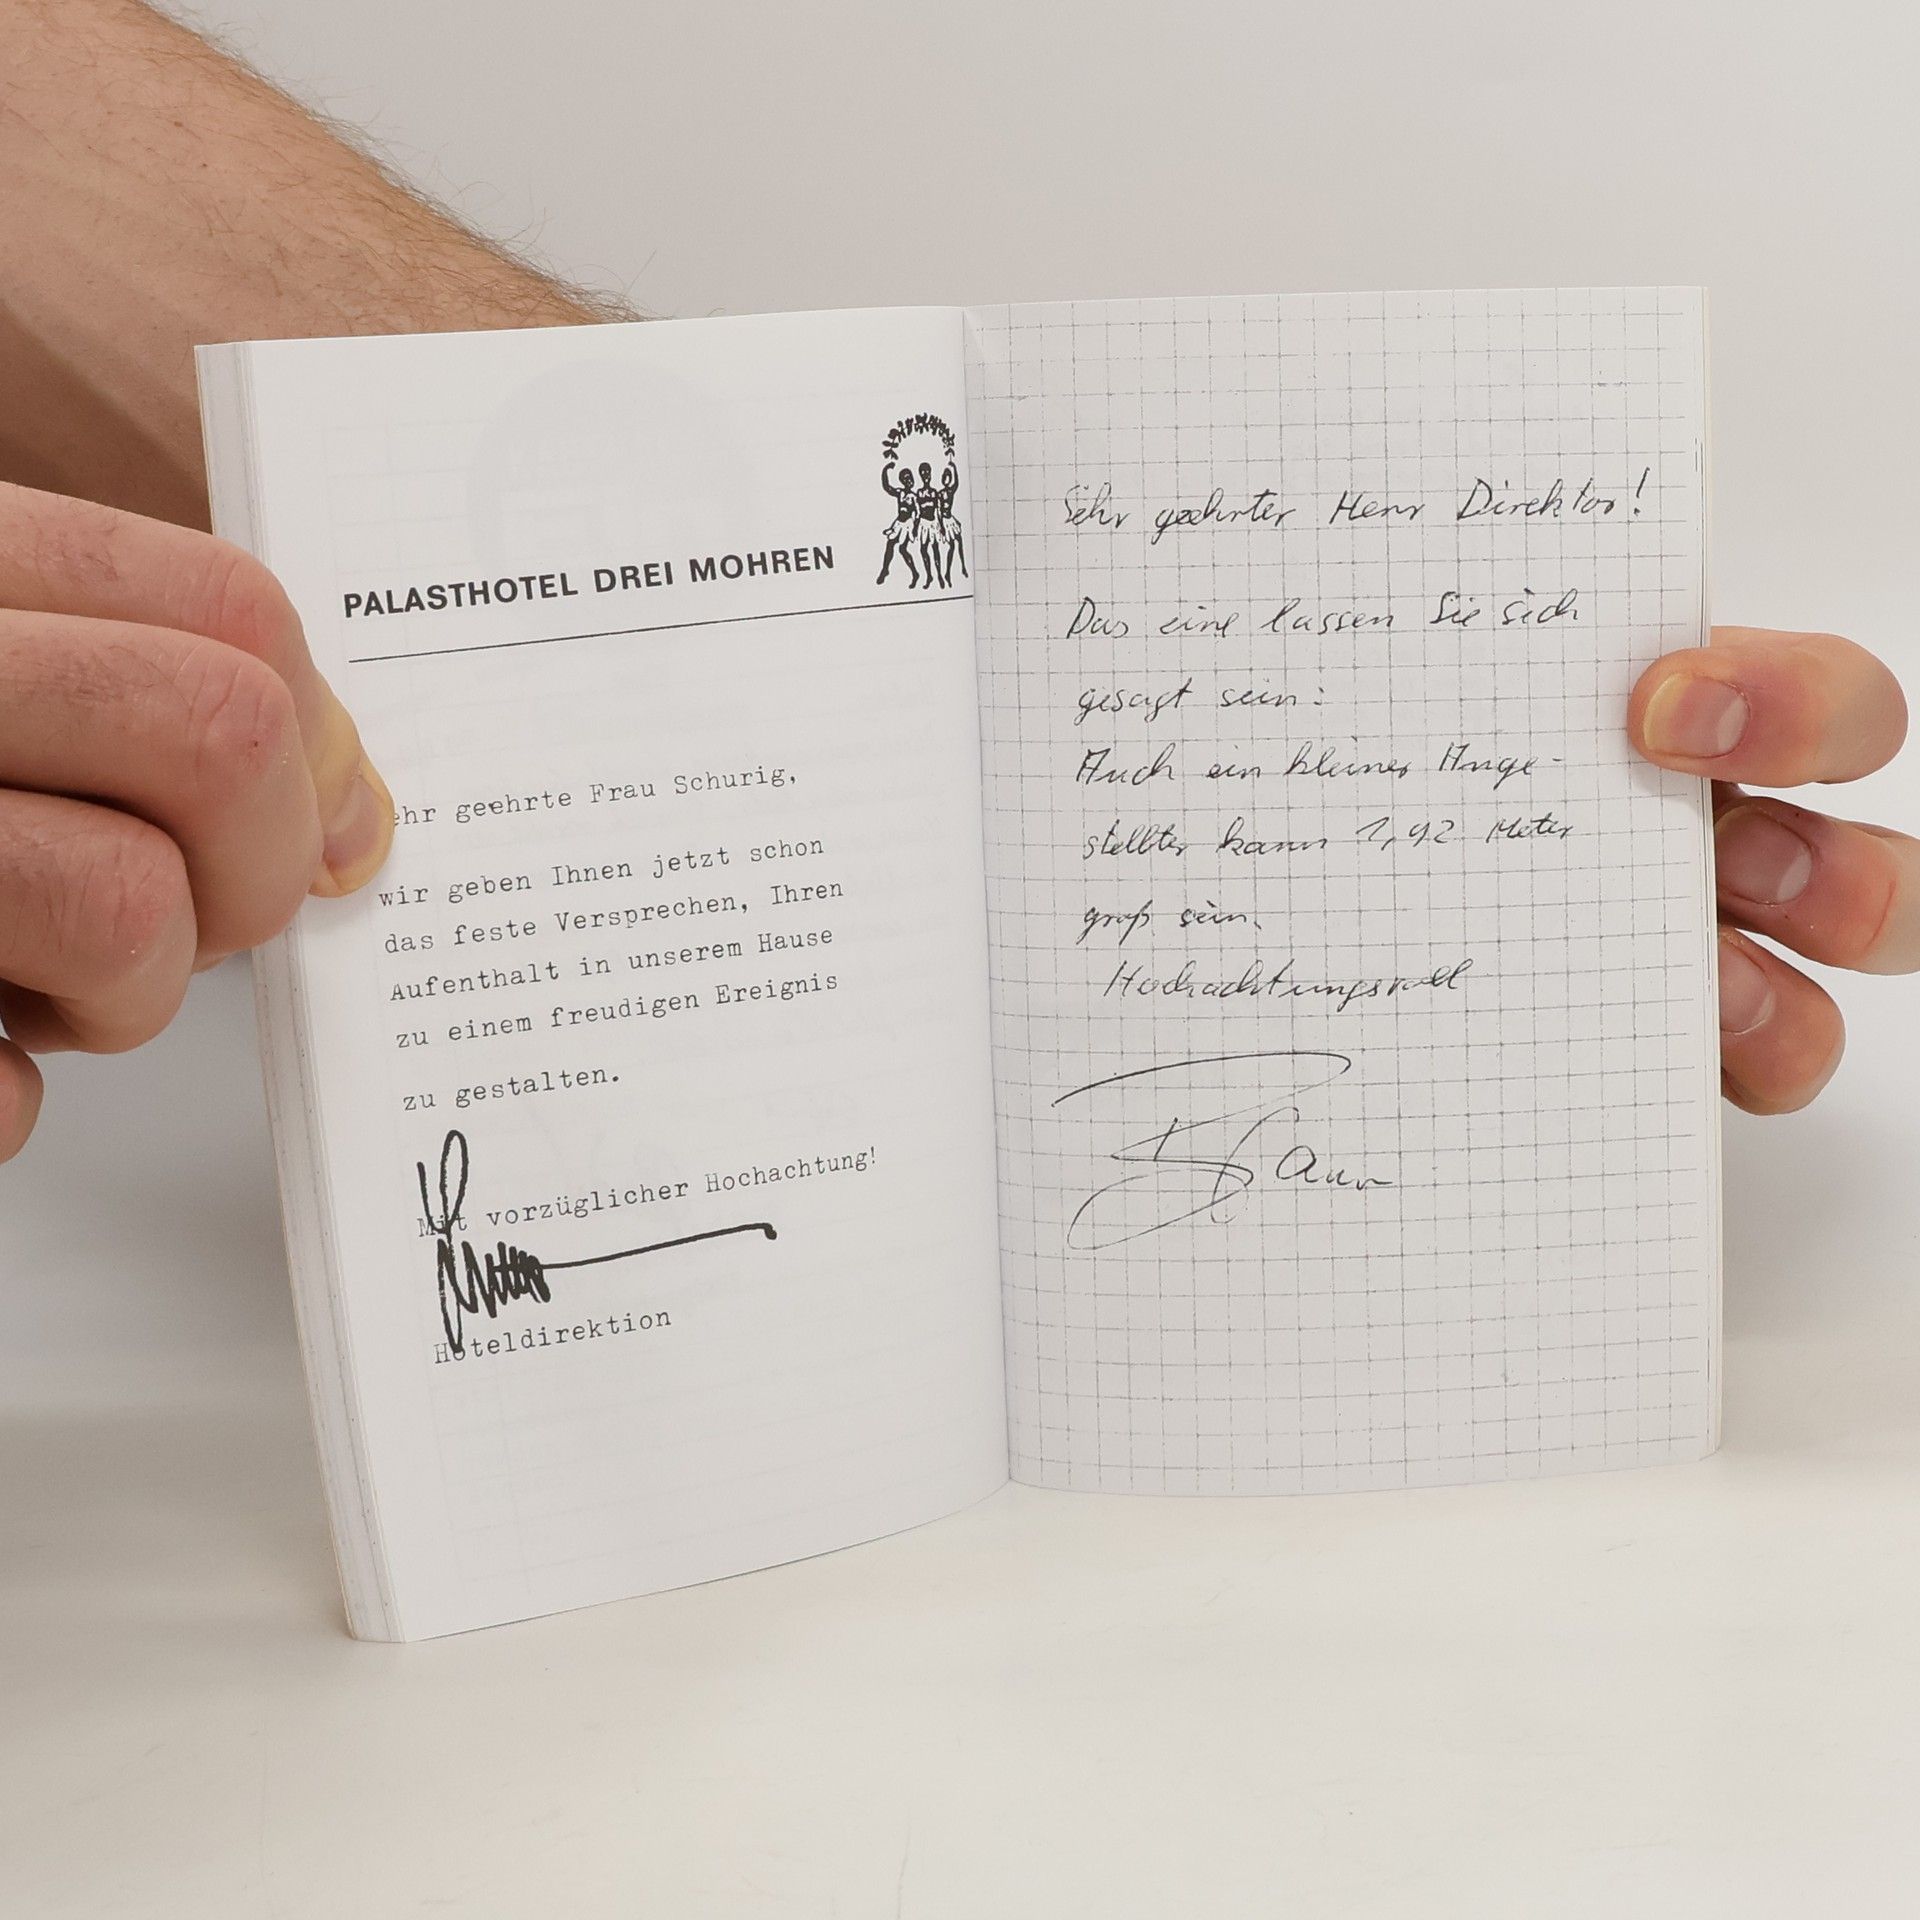 PALASTHOTEL DREI MOHREN
ehr geehrte Frau Schurig,
wir geben Ihnen jetzt schon
das feste Versprechen, Ihren
Aufenthalt in unserem Hause
zu einem freudigen Ereignis
zu gestalten.
Mit vorzüglicher Hochachtung!
Hoteldirektion
Sehr geehrter Herr Direktor!
Das eine lassen Sie sich
gesagt sein:
Auch ein kleiner Ange-
stellter kann 1,92 Meter
groß sein.
Hochachtungsvoll